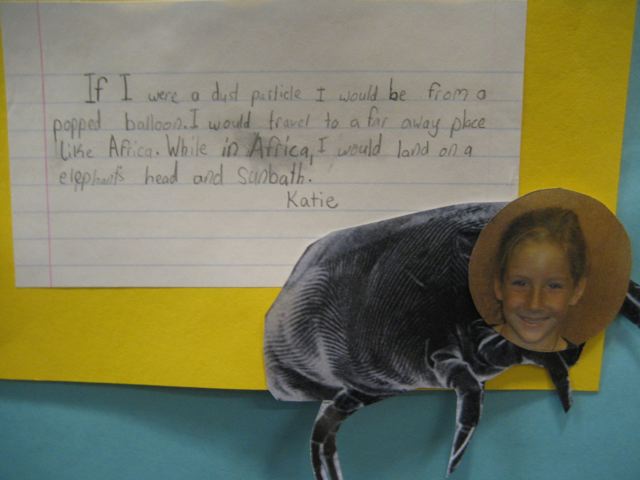 If I were a dust particle I would be from a
popped balloon. I would travel to a far away place
like Africa. While in Africa, I would land on a
elephants head and Sunbath.
Katie